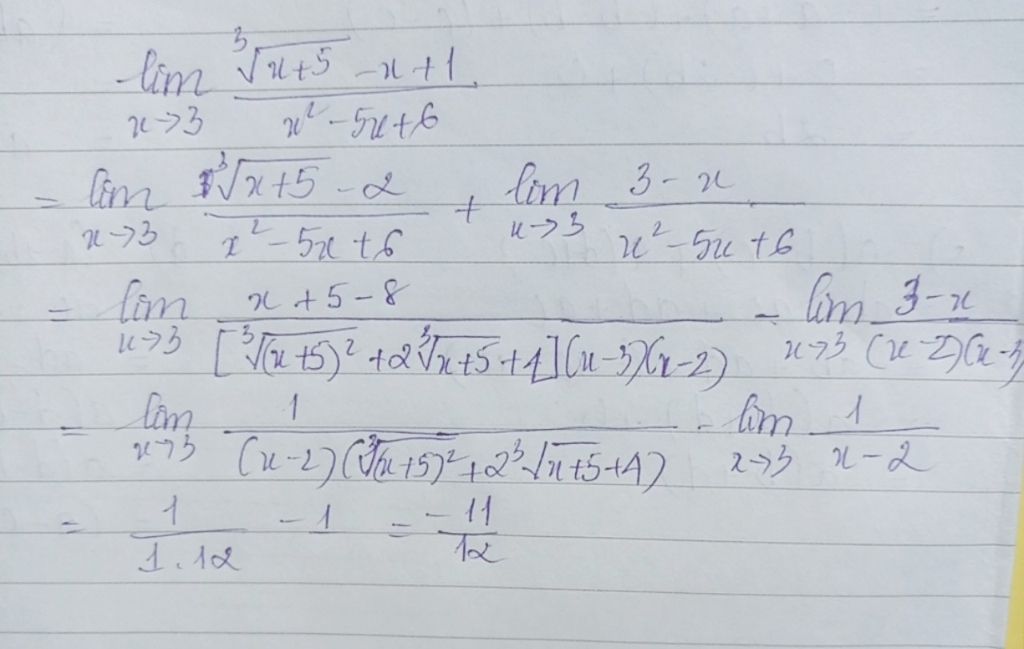 lim_{x→3} \frac{\sqrt[3]{x+5} - x + 1}{x² - 5x + 6}
= lim_{x→3} \frac{\sqrt[3]{x+5} - 2}{x² - 5x + 6} + lim_{x→3} \frac{3 - x}{x² - 5x + 6}
= lim_{x→3} \frac{x + 5 - 8}{[\sqrt[3]{(x+5)²} + 2\sqrt[3]{x+5} + 4](x-3)(x-2)} - lim_{x→3} \frac{3 - x}{(x-2)(x-3)}
= lim_{x→3} \frac{1}{(x-2)(\sqrt[3]{(x+5)²} + 2\sqrt[3]{x+5} + 4)} - lim_{x→3} \frac{1}{x-2}
= \frac{1}{1.12} - 1 = \frac{-11}{12}